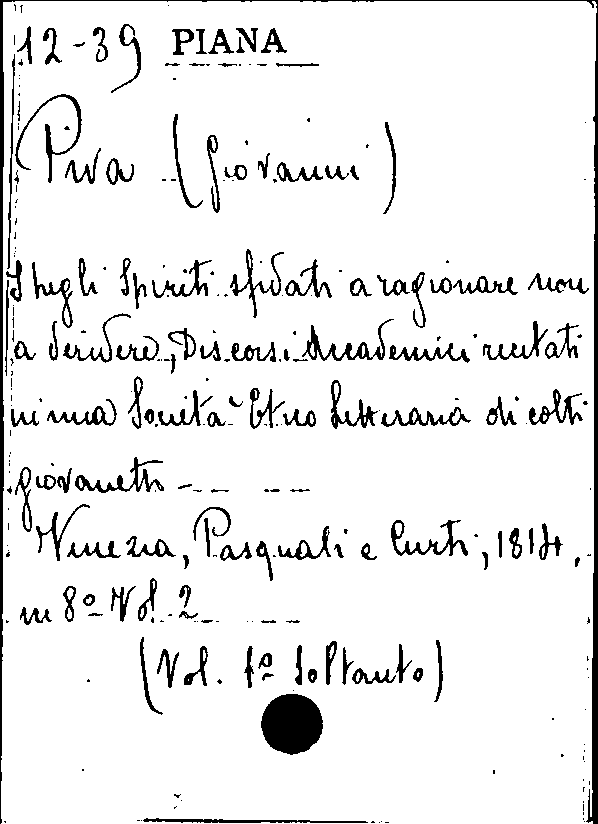 12-39 PIANA
Piva (Giovanni)
Spegli Spiriti sfidati a ragionare non
a deridere, Discorsi Accademici recitati
in una Società Etico Letteraria di colti
giovanetti - -- --
Venezia, Pasquali e Curti, 1814,
in 8º Vol. 2
(Vol. 1º Soltanto)